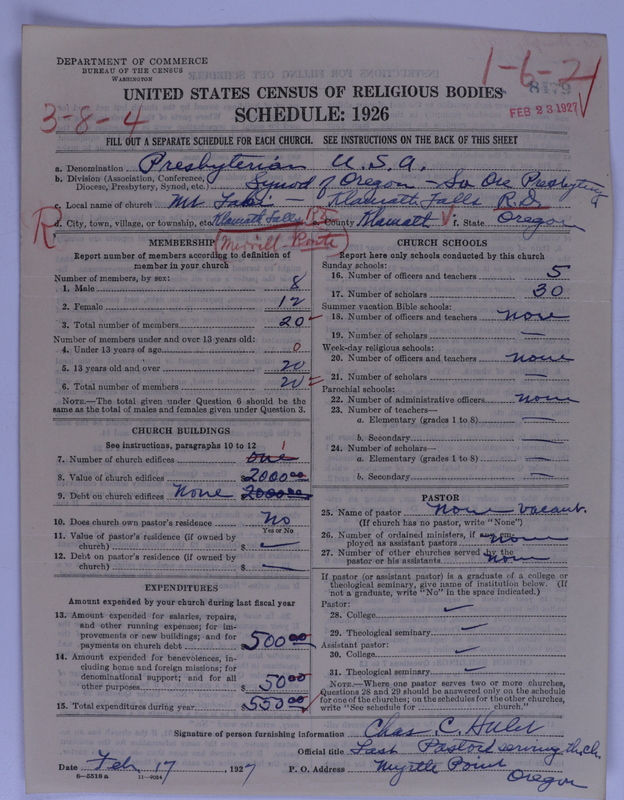 DEPARTMENT OF COMMERCE
BUREAU OF THE CENSUS
WASHINGTON
1-6-21
8179
FEB 23 1927
UNITED STATES CENSUS OF RELIGIOUS BODIES
SCHEDULE: 1926
3-8-4
FILL OUT A SEPARATE SCHEDULE FOR EACH CHURCH. SEE INSTRUCTIONS ON THE BACK OF THIS SHEET
a. Denomination Presbyterian U.S.A.
b. Division (Association, Conference, Diocese, Presbytery, Synod, etc.) Synod of Oregon - So Ore Presbytery
c. Local name of church Mt Laki - Klamath Falls R.D.
R
d. City, town, village, or township, etc. Klamath Falls R.D. e. County Klamath f. State Oregon
Merrill Route
MEMBERSHIP
Report number of members according to definition of
member in your church
Number of members, by sex:
1. Male 8
2. Female 12
3. Total number of members 20
Number of members under and over 13 years old:
4. Under 13 years of age 0
5. 13 years old and over 20
6. Total number of members 20
NOTE.—The total given under Question 6 should be
same as the total of males and females given under Question 3.
CHURCH BUILDINGS
See instructions, paragraphs 10 to 12
7. Number of church edifices one 1
8. Value of church edifices $2000.00
9. Debt on church edifices None 2000.00
10. Does church own pastor's residence No
Yes or No
11. Value of pastor's residence (if owned by
church) $ —
12. Debt on pastor's residence (if owned by
church) $ —
EXPENDITURES
Amount expended by your church during last fiscal year
13. Amount expended for salaries, repairs,
and other running expenses; for im-
provements or new buildings; and for
payments on church debt 500.00
14. Amount expended for benevolences, in-
cluding home and foreign missions; for
denominational support; and for all
other purposes $50.00
15. Total expenditures during year $550.00
CHURCH SCHOOLS
Report here only schools conducted by this church
Sunday schools:
16. Number of officers and teachers 5
17. Number of scholars 30
Summer vacation Bible schools:
18. Number of officers and teachers none
19. Number of scholars —
Week-day religious schools:
20. Number of officers and teachers none
21. Number of scholars —
Parochial schools:
22. Number of administrative officers none
23. Number of teachers—
a. Elementary (grades 1 to 8) —
b. Secondary —
24. Number of scholars—
a. Elementary (grades 1 to 8) —
b. Secondary —
PASTOR
25. Name of pastor None vacant.
(If church has no pastor, write "None")
26. Number of ordained ministers, if any, em-
ployed as assistant pastors none
27. Number of other churches served by the
pastor or his assistants none
If pastor (or assistant pastor) is a graduate of a college or
theological seminary, give name of institution below. (If
not a graduate, write "No" in the space indicated.)
Pastor:
28. College
29. Theological seminary
Assistant pastor:
30. College
31. Theological seminary
NOTE.—Where one pastor serves two or more churches,
Questions 28 and 29 should be answered only on the schedule
for one of the churches; on the schedules for the other churches,
write "See schedule for church."
Signature of person furnishing information Chas. C.
Official title Last Pastor serving the ch.
Date Feb 17, 1927 P. O. Address Myrtle Point
Oregon
8—5518 a 11—9024